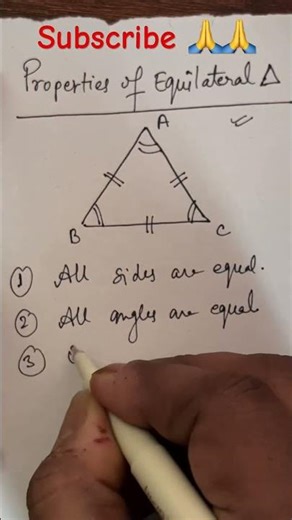 Subscribe 🙏🙏
Properties of Equilateral Δ
A
B
C
① All sides are equal.
② All angles are equal
③